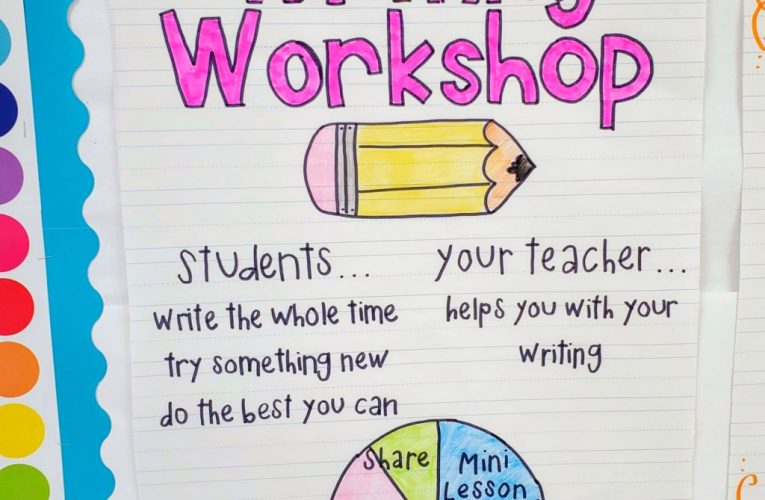 Workshop
students...
write the whole time
try something new
do the best you can
your teacher...
helps you with your
writing
Share
Mini
Lesson